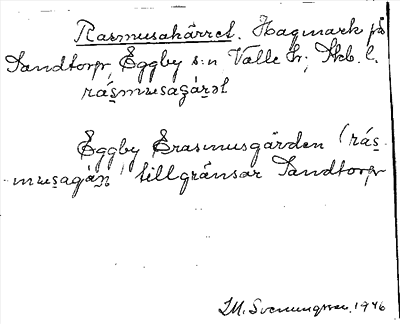 Rasmusakärret. Hagmark på
Sandtorp, Eggby s:n Valle hr; Skb. l.
rásmusagáꞧət
Eggby Erasmusgården (rás-
musagán) tillgränsar Sandtorp
M. Svenungsson, 1946